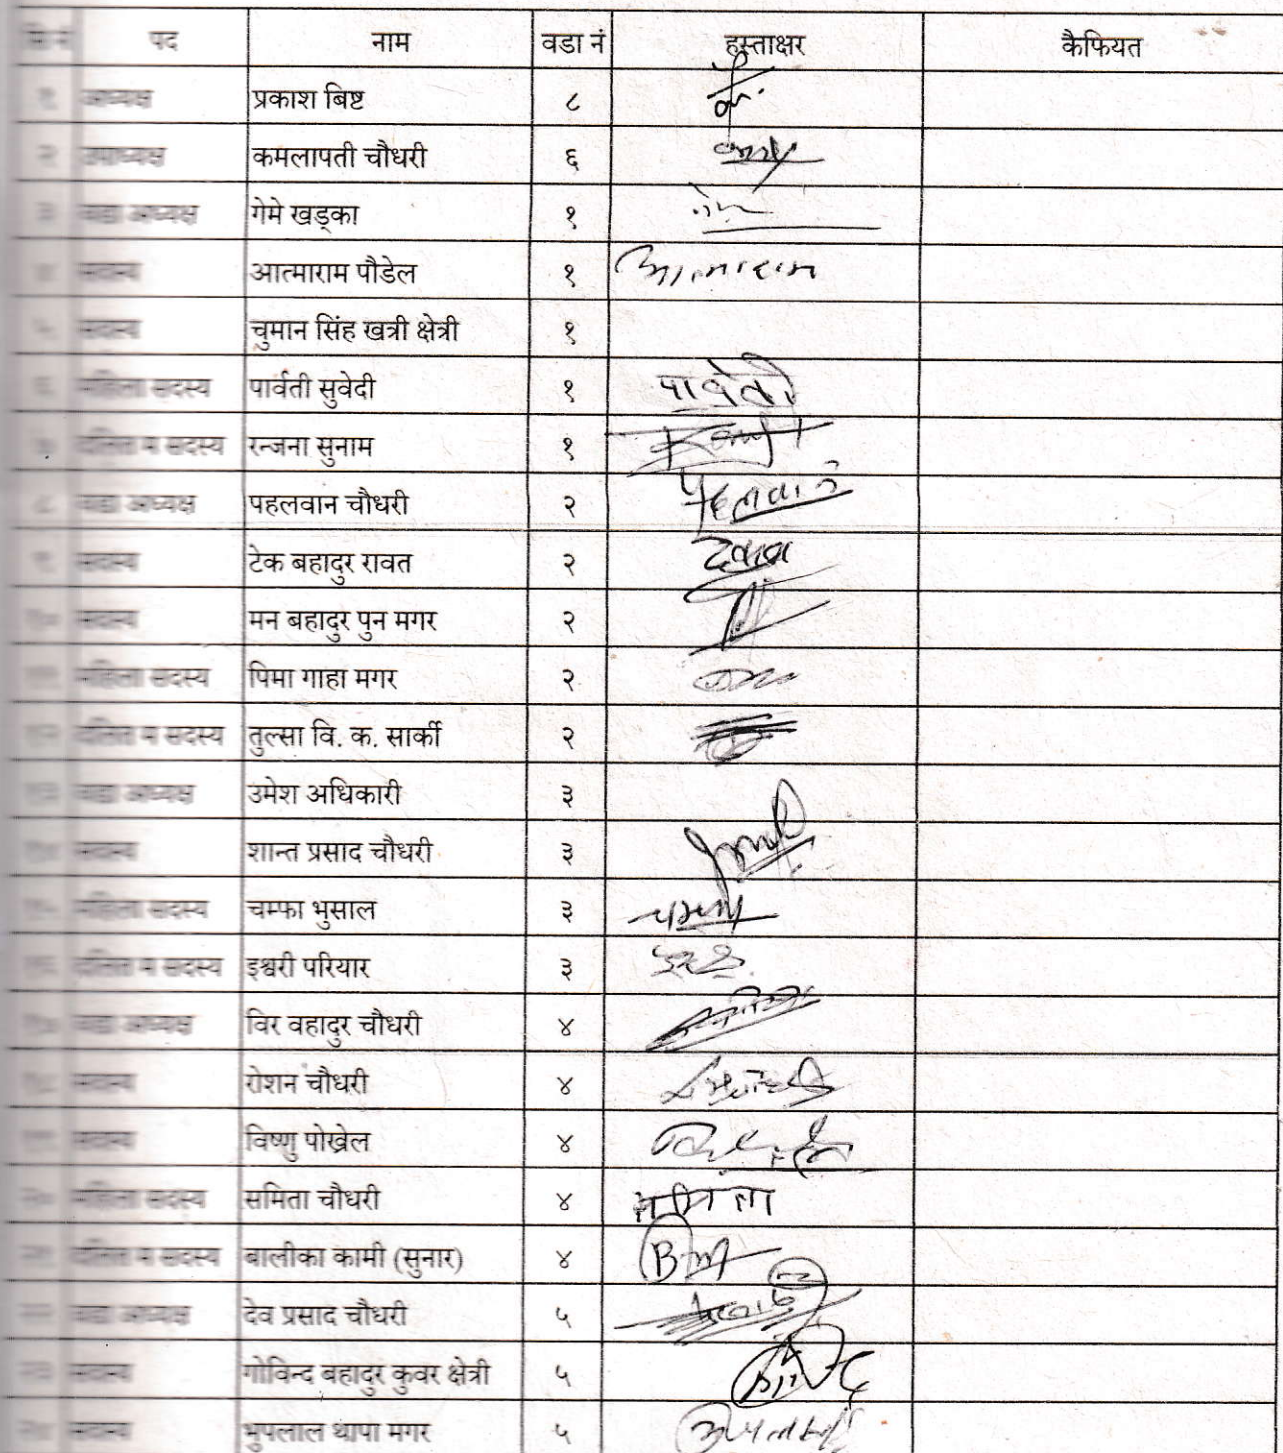 पद नाम वडा नं हस्ताक्षर कैफियत
१ अध्यक्ष प्रकाश बिष्ट ८
२ उपाध्यक्ष कमलापती चौधरी ६
३ वडा अध्यक्ष गेमे खड्का १
४ सदस्य आत्माराम पौडेल १ आत्माराम
५ सदस्य चुमान सिंह खत्री क्षेत्री १
६ महिला सदस्य पार्वती सुवेदी १ पार्वती
७ दलित म सदस्य रन्जना सुनाम १
८ वडा अध्यक्ष पहलवान चौधरी २ पहलवान
९ सदस्य टेक बहादुर रावत २
१० सदस्य मन बहादुर पुन मगर २
११ महिला सदस्य पिमा गाहा मगर २
१२ दलित म सदस्य तुल्सा वि. क. सार्की २
१३ वडा अध्यक्ष उमेश अधिकारी ३
१४ सदस्य शान्त प्रसाद चौधरी ३
१५ महिला सदस्य चम्फा भुसाल ३
१६ दलित म सदस्य इश्वरी परियार ३
१७ वडा अध्यक्ष विर वहादुर चौधरी ४
१८ सदस्य रोशन चौधरी ४
१९ सदस्य विष्णु पोख्रेल ४
२० महिला सदस्य समिता चौधरी ४ समिता
२१ दलित म सदस्य बालीका कामी (सुनार) ४
२२ वडा अध्यक्ष देव प्रसाद चौधरी ५
२३ सदस्य गोविन्द बहादुर कुवर क्षेत्री ५
२४ सदस्य भुपलाल थापा मगर ५